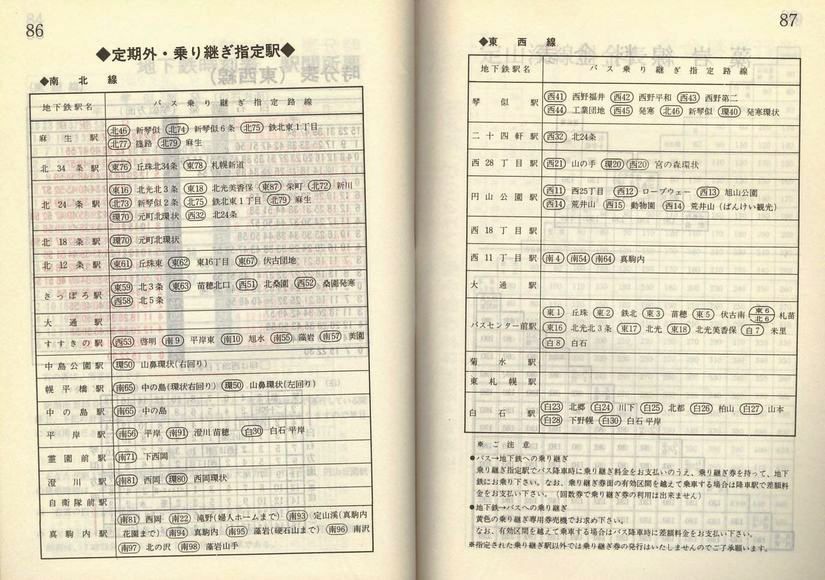 86
◆定期外・乗り継ぎ指定駅◆
◆南北線
地下鉄駅名 バス乗り継ぎ指定路線
麻生駅 北46 新琴似 北74 新琴似6条 北75 鉄北東1丁目
北77 篠路 北79 麻生
北34条駅 東76 丘珠北34条 東78 札幌新道
北24条駅 東16 北光北3条 東18 北光美香保 東87 栄町 北72 新川
北73 新琴似2条 北75 鉄北東1丁目 北79 麻生
環70 元町北環状 西32 北24条
北18条駅 環70 元町北環状
北12条駅 東61 丘珠東 東62 東16丁目 東67 伏古団地
さっぽろ駅 東59 北3条 東63 苗穂北口 西51 北桑園 西52 桑園発寒
西58 北5条
大通駅
すすきの駅 西53 啓明 南9 平岸東 南10 旭水 南55 藻岩 南57 美園
中島公園駅 環50 山鼻環状(右回り)
幌平橋駅 南65 中の島(環状右回り) 環50 山鼻環状(左回り)
中の島駅 南65 中の島
平岸駅 南56 平岸 南91 澄川苗穂 白30 白石平岸
霊園前駅 南71 下西岡
澄川駅 南81 西岡 環80 西岡環状
自衛隊前駅
真駒内駅 南81 西岡 南22 滝野(婦人ホームまで) 南93 定山渓(真駒内
花園まで) 南94 真駒内 南95 藻岩(硬石山まで) 南96 南沢
南97 北の沢 南98 藻岩山手
87
◆東西線
地下鉄駅名 バス乗り継ぎ指定路線
琴似駅 西41 西野福井 西42 西野平和 西43 西野第二
西44 工業団地 西45 発寒 北46 新琴似 環40 発寒環状
二十四軒駅 西32 北24条
西28丁目駅 西21 山の手 環20 西20 宮の森環状
円山公園駅 西11 西25丁目 西12 ロープウェー 西13 旭山公園
西14 荒井山 西15 動物園 西14 荒井山(ばんけい観光)
西18丁目駅
西11丁目駅 南4 南54 南64 真駒内
大通駅
バスセンター前駅 東1 丘珠 東2 鉄北 東3 苗穂 東5 伏古南 東6 北6 札苗
東16 北光北3条 東17 北光 東18 北光美香保 白7 米里
白8 白石
菊水駅
東札幌駅
白石駅 白23 北郷 白24 川下 白25 北都 白26 柏山 白27 山本
白28 下野幌 白30 白石平岸
※ご注意
●バス→地下鉄への乗り継ぎ
乗り継ぎ指定駅でバス降車時に乗り継ぎ料金をお支払いのうえ、乗り継ぎ券を持って、地下
鉄にお乗り下さい。なお、乗り継ぎ券面の有効区間を越えて乗車する場合は降車駅で差額料
金をお支払い下さい。(回数券で乗り継ぎ券の利用は出来ません)
●地下鉄→バスへの乗り継ぎ
黄色の乗り継ぎ専用券売機でお求め下さい。
なお、有効区間を越えて乗車する場合はバス降車時に差額料金をお支払い下さい。
※指定された乗り継ぎ駅以外では乗り継ぎ券の発行はいたしませんのでご了承願います。